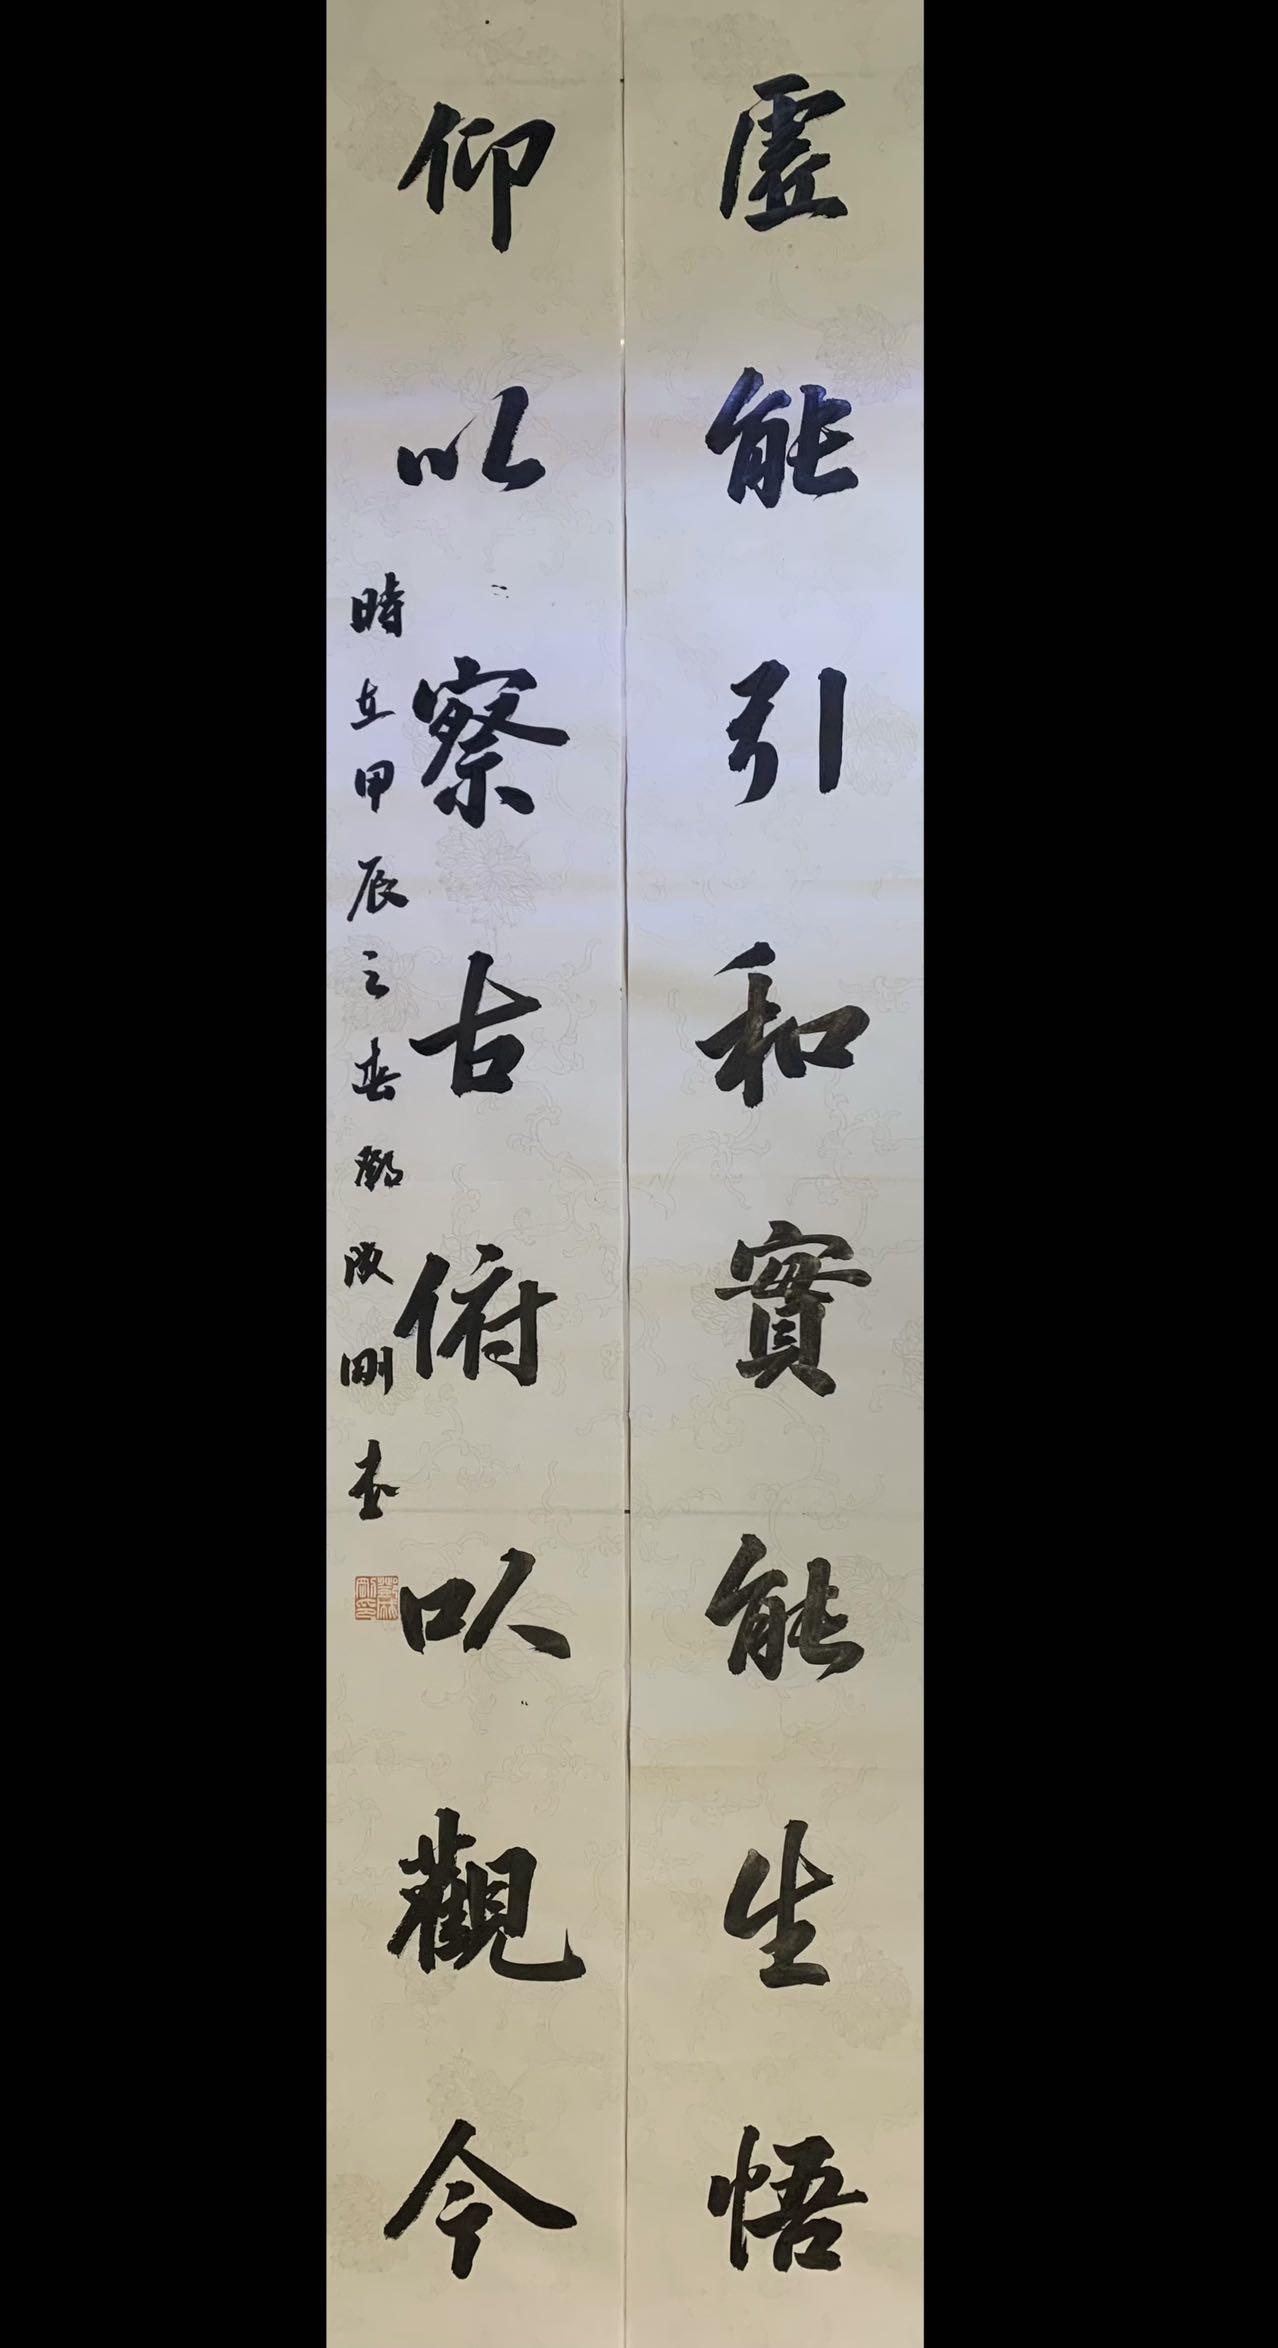 虛能引和實能生悟
仰以察古俯以觀今
時在甲辰之春鄧成剛書